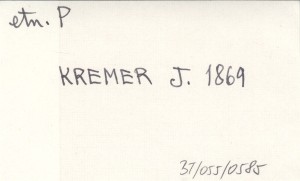 etn. P
KREMER J. 1869
37/055/0585